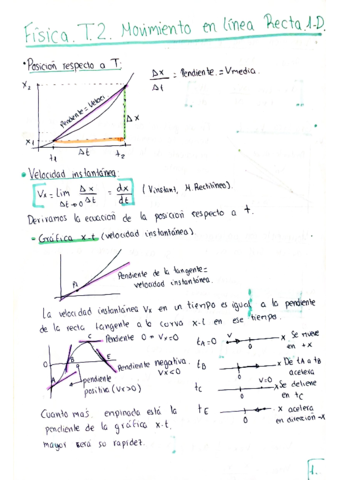 Física. T.2. Movimiento en línea Recta 1-D.
• Posición respecto a T:
x2
x1
t1
Δt
t2
Δx
Pendiente = Veloci
Δx/Δt = Pendiente = Vmedia
• Velocidad instantánea:
Vx = lim Δt→0 Δx/Δt = dx/dt (V.instant, M. Rectilíneo)
Derivamos la ecuación de la posición respecto a t.
- Gráfica x-t (velocidad instantánea)
P1
Pendiente de la tangente =
velocidad instantánea
La velocidad instantánea Vx en un tiempo es igual a la pendiente
de la recta tangente a la curva x-t en ese tiempo.
Pendiente 0 = Vx=0
A
B
C
E
Pendiente negativa.
Vx<0
pendiente
positiva (Vx>0)
tA=0
0
x Se mueve
en +x
tB
0
x De tA a tB
acelera
tC
V=0
0
x Se detiene
en tC
tE
0
x acelera
en dirección -x
Cuanto más empinada está la
pendiente de la gráfica x-t
mayor será su rapidez.
1.